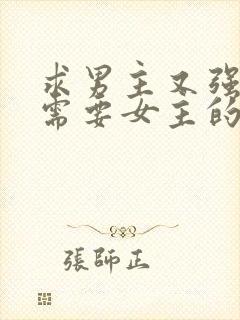 求男主又强
需要女主的
張師正